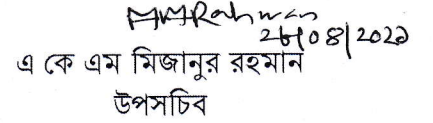 MMRahman
26/08/2021
এ কে এম মিজানুর রহমান
উপসচিব